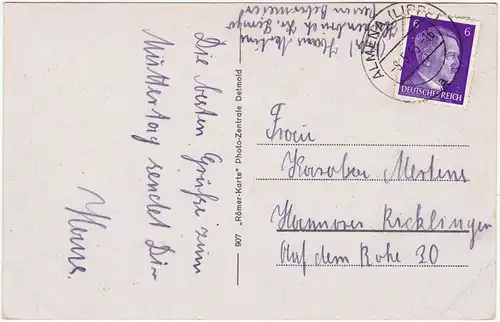 Die besten Grüße zum
Muttertag sendet Dir
Hans.
907 „Römer-Karte" Photo-Zentrale Detmold
Hans
ALMENA (LIPPE)
6 6
DEUTSCHES REICH
Frau
Mertens
Hannover Ricklingen
Auf dem Rohe 30